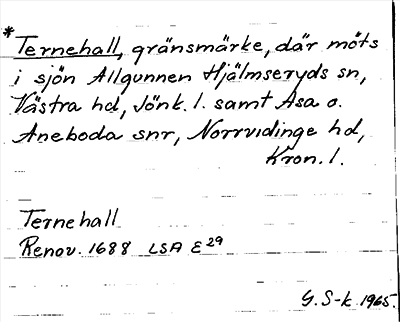 *Ternehall, gränsmärke, där möts
i sjön Allgunnen Hjälmseryds sn,
Västra hd, Jönk. l. samt Asa o.
Aneboda snr, Norrvidinge hd,
Kron. l.
Ternehall
Renov. 1688 LSA E29
G. S-k 1965.